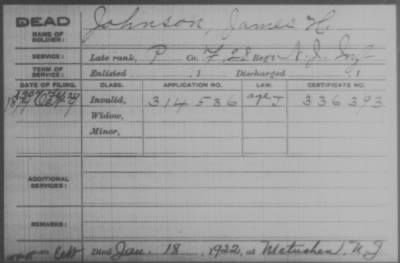 DEAD
NAME OF SOLDIER: Johnson, James H.
SERVICE: Late rank, P Co. F, 28 Reg't N.J. Inf
TERM OF SERVICE: Enlisted , 1 Discharged , 1
DATE OF FILING. CLASS. APPLICATION NO. LAW. CERTIFICATE NO.
Invalid, 314 536 age I 336 393
Widow,
Minor,
ADDITIONAL SERVICES:
REMARKS:
Died Jan. 18, 1922, at Metuchen, N.J